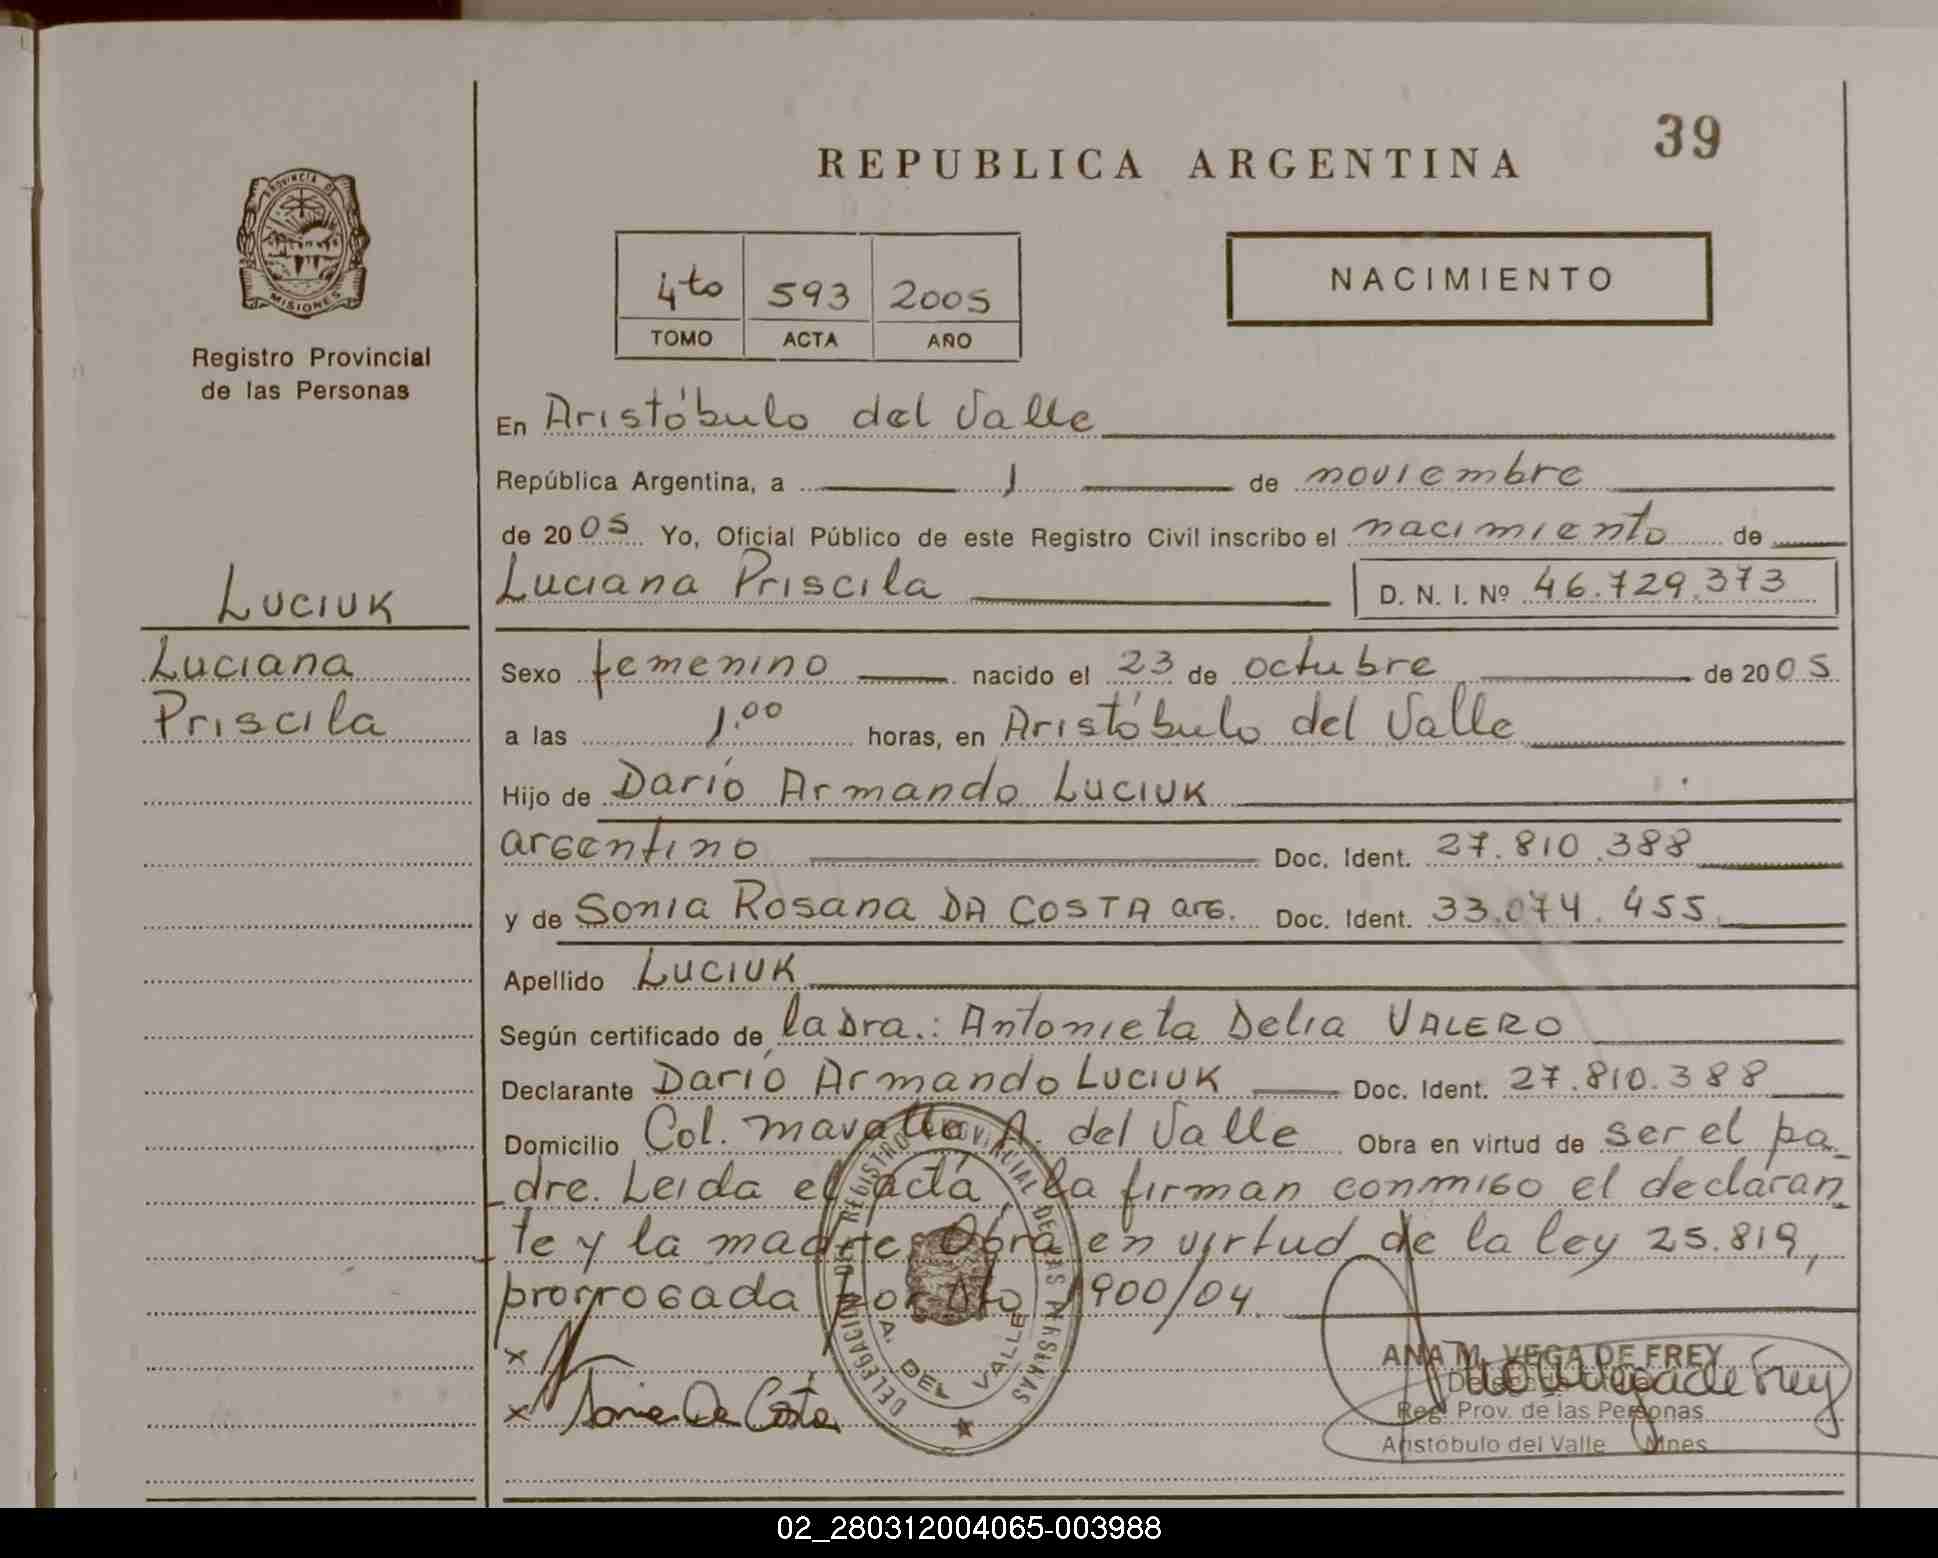 39
REPUBLICA ARGENTINA
PROVINCIA DE
MISIONES
Registro Provincial
de las Personas
4to 593 2005
TOMO ACTA AÑO
NACIMIENTO
En Aristóbulo del Valle
República Argentina, a 1 de noviembre
de 2005 Yo, Oficial Público de este Registro Civil inscribo el nacimiento de
Luciana Priscila D. N. I. Nº 46.729.373
LUCIUK
Luciana
Priscila
Sexo femenino nacido el 23 de octubre de 2005
a las 1.00 horas, en Aristóbulo del Valle
Hijo de Darío Armando LUCIUK
argentino Doc. Ident. 27.810.388
y de Sonia Rosana DA COSTA arg. Doc. Ident. 33.074.455
Apellido LUCIUK
Según certificado de la Dra.: Antonieta Delia VALERO
Declarante Darío Armando LUCIUK Doc. Ident. 27.810.388
Domicilio Col. mavalle A. del Valle Obra en virtud de ser el pa-
dre. Leida el acta, la firman conmigo el declaran
te y la madre. Obra en virtud de la ley 25.819,
prorrogada por Dto 1900/04
x
x Sonia Da Costa
DELEGACION DEL REGISTRO PROVINCIAL DE LAS PERSONAS
A. DEL VALLE
ANA M. VEGA DE FREY
Reg. Prov. de las Personas
Aristóbulo del Valle Mnes
02_280312004065-003988